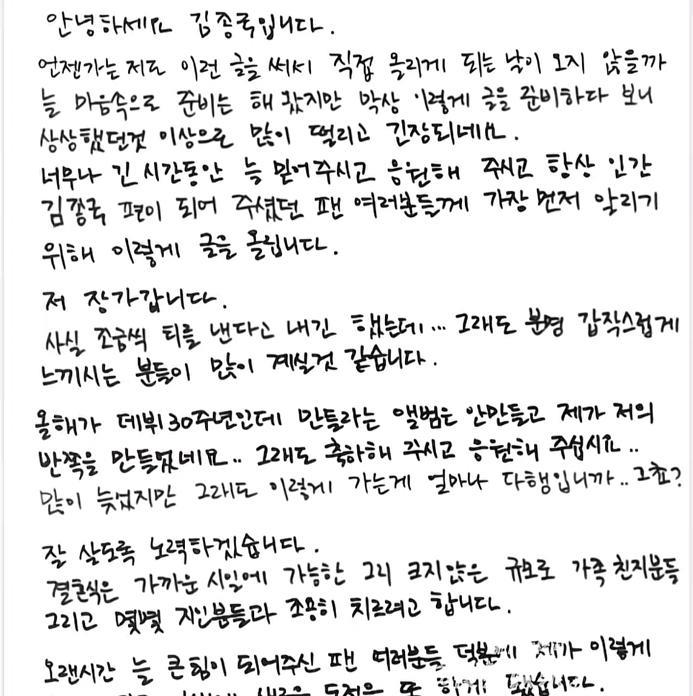 안녕하세요 김종국입니다.
언젠가는 저도 이런 글을 써서 직접 올리게 되는 날이 오지 않을까
늘 마음속으로 준비는 해 왔지만 막상 이렇게 글을 준비하다 보니
상상했던것 이상으로 많이 떨리고 긴장되네요.
너무나 긴 시간동안 늘 믿어주시고 응원해 주시고 항상 인간
김종국 편이 되어 주셨던 팬 여러분들께 가장 먼저 알리기
위해 이렇게 글을 올립니다.
저 장가갑니다.
사실 조금씩 티를 낸다고 내긴 했는데... 그래도 분명 갑작스럽게
느끼시는 분들이 많이 계실것 같습니다.
올해가 데뷔30주년인데 만들라는 앨범은 안만들고 제가 저의
반쪽을 만들었네요.. 그래도 축하해 주시고 응원해 주십시요..
많이 늦었지만 그래도 이렇게 가는게 얼마나 다행입니까.. 그쵸?
잘 살도록 노력하겠습니다.
결혼식은 가까운 시일에 가능한 그리 크지않은 규모로 가족 친지분들
그리고 몇몇 지인분들과 조용히 치르려고 합니다.
오랜시간 늘 큰힘이 되어주신 팬 여러분들 덕분에 제가 이렇게
새로운 도전을 또 하게 됐습니다.